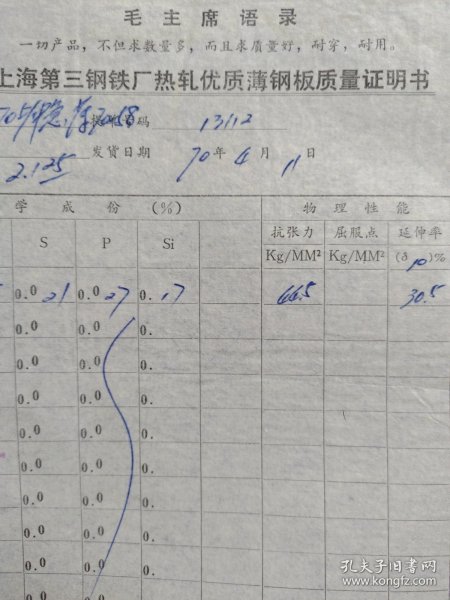 毛主席语录
一切产品，不但求数量多，而且求质量好，耐穿，耐用。
上海第三钢铁厂热轧优质薄钢板质量证明书
号码 13112
2.125 发货日期 70年4月11日
学成份(%) 物理性能
S P Si 抗张力 屈服点 延伸率
Kg/MM² Kg/MM² (δ10)%
0.021 0.027 0.17 44.5 30.5
0.0 0.0 0.
0.0 0.0 0.
0.0 0.0 0.
0.0 0.0 0.
0.0 0.0 0.
0.0 0.0 0.
0.0 0.0 0.
0.0 0.0 0.
0.0 0.0 0.
孔夫子旧书网
www.kongfz.com